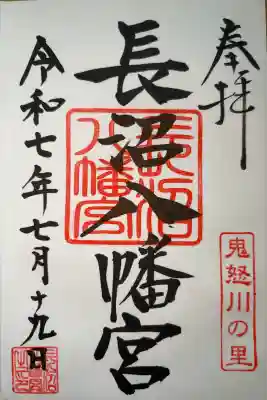 奉拝
鬼怒川の里
長沼八幡宮
長沼八幡宮
令和七年七月十九日